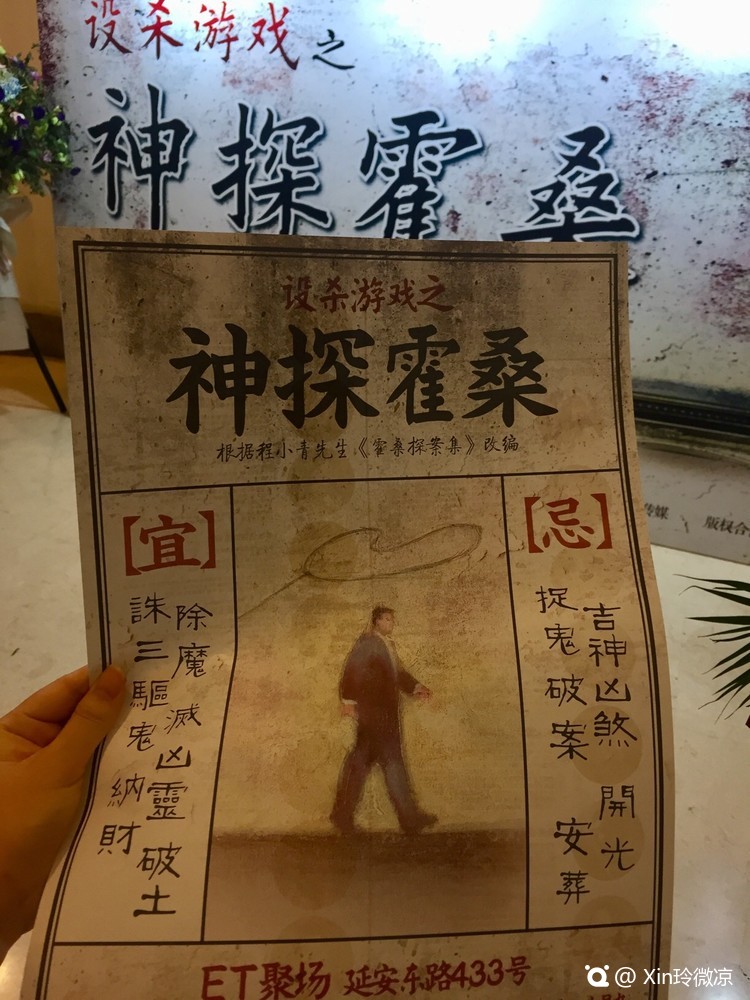 设杀游戏之
神探霍桑
传媒 版权合
设杀游戏之
神探霍桑
根据程小青先生《霍桑探案集》改编
【宜】
除魔 滅凶靈 破土
誅三驅鬼 納財
【忌】
吉神凶煞 開光
捉鬼破案 安葬
ET聚场 延安东路433号
@ Xin玲微凉